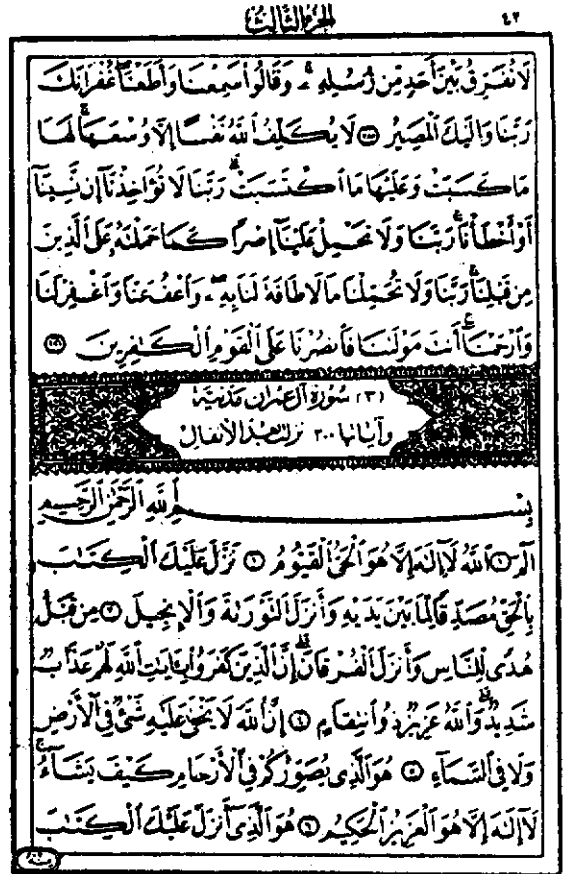 ٤٢
الجزء الثالث
لَا نُفَرِّقُ بَيْنَ أَحَدٍ مِّن رُّسُلِهِۦ ۚ وَقَالُوا۟ سَمِعْنَا وَأَطَعْنَا ۖ غُفْرَانَكَ
رَبَّنَا وَإِلَيْكَ ٱلْمَصِيرُ ۝٢٨٥ لَا يُكَلِّفُ ٱللَّهُ نَفْسًا إِلَّا وُسْعَهَا ۚ لَهَا
مَا كَسَبَتْ وَعَلَيْهَا مَا ٱكْتَسَبَتْ ۗ رَبَّنَا لَا تُؤَاخِذْنَآ إِن نَّسِينَآ
أَوْ أَخْطَأْنَا ۚ رَبَّنَا وَلَا تَحْمِلْ عَلَيْنَآ إِصْرًا كَمَا حَمَلْتَهُۥ عَلَى ٱلَّذِينَ
مِن قَبْلِنَا ۚ رَبَّنَا وَلَا تُحَمِّلْنَا مَا لَا طَاقَةَ لَنَا بِهِۦ ۖ وَٱعْفُ عَنَّا وَٱغْفِرْ لَنَا
وَٱرْحَمْنَآ ۚ أَنتَ مَوْلَىٰنَا فَٱنصُرْنَا عَلَى ٱلْقَوْمِ ٱلْكَٰفِرِينَ ۝٢٨٦
(٣) سُورَةُ آلِ عِمْرَانَ مَدَنِيَّة
وآياتها ٢٠٠ نزلت بعد الأنفال
بِسْمِ ٱللَّهِ ٱلرَّحْمَٰنِ ٱلرَّحِيمِ
الٓمٓ ۝١ ٱللَّهُ لَآ إِلَٰهَ إِلَّا هُوَ ٱلْحَىُّ ٱلْقَيُّومُ ۝٢ نَزَّلَ عَلَيْكَ ٱلْكِتَٰبَ
بِٱلْحَقِّ مُصَدِّقًا لِّمَا بَيْنَ يَدَيْهِ وَأَنزَلَ ٱلتَّوْرَىٰةَ وَٱلْإِنجِيلَ ۝٣ مِن قَبْلُ
هُدًى لِّلنَّاسِ وَأَنزَلَ ٱلْفُرْقَانَ ۗ إِنَّ ٱلَّذِينَ كَفَرُوا۟ بِـَٔايَٰتِ ٱللَّهِ لَهُمْ عَذَابٌ
شَدِيدٌ ۗ وَٱللَّهُ عَزِيزٌ ذُو ٱنتِقَامٍ ۝٤ إِنَّ ٱللَّهَ لَا يَخْفَىٰ عَلَيْهِ شَىْءٌ فِى ٱلْأَرْضِ
وَلَا فِى ٱلسَّمَآءِ ۝٥ هُوَ ٱلَّذِى يُصَوِّرُكُمْ فِى ٱلْأَرْحَامِ كَيْفَ يَشَآءُ ۚ
لَآ إِلَٰهَ إِلَّا هُوَ ٱلْعَزِيزُ ٱلْحَكِيمُ ۝٦ هُوَ ٱلَّذِىٓ أَنزَلَ عَلَيْكَ ٱلْكِتَٰبَ
منه